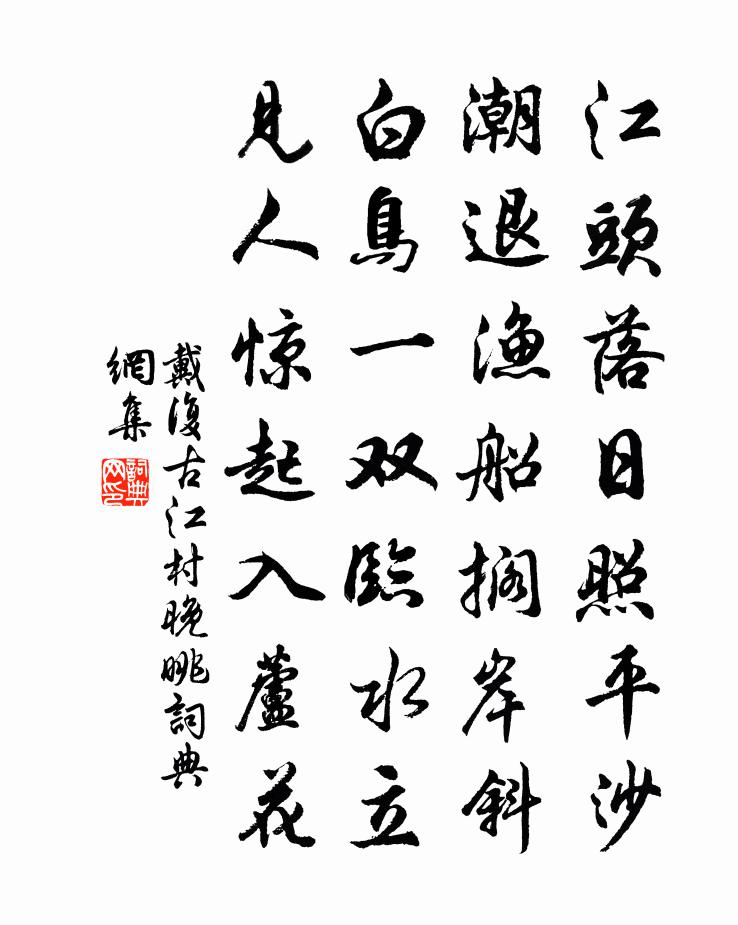 江頭落日照平沙
潮退漁船搁岸斜
白鳥一双臨水立
見人惊起入蘆花
戴復古江村晚眺詞典
網集
詞典網印